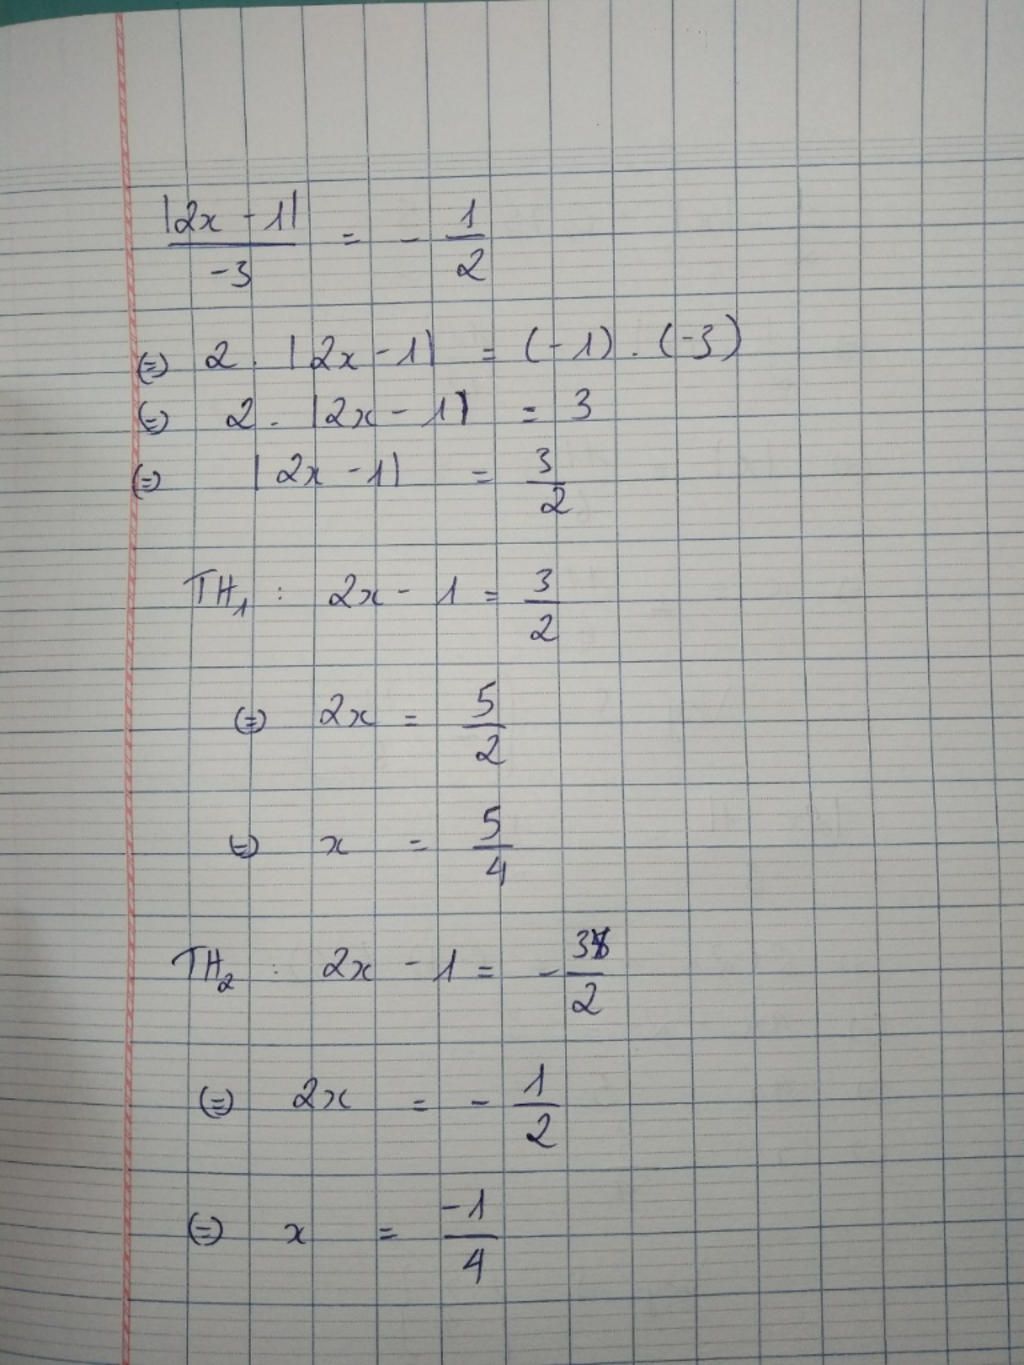 |2x - 1| / -3 = - 1/2
(=) 2 . |2x - 1| = (-1) . (-3)
(=) 2 . |2x - 1| = 3
(=) |2x - 1| = 3/2
TH1 : 2x - 1 = 3/2
(=) 2x = 5/2
(=) x = 5/4
TH2 : 2x - 1 = - 3/2
(=) 2x = - 1/2
(=) x = -1/4